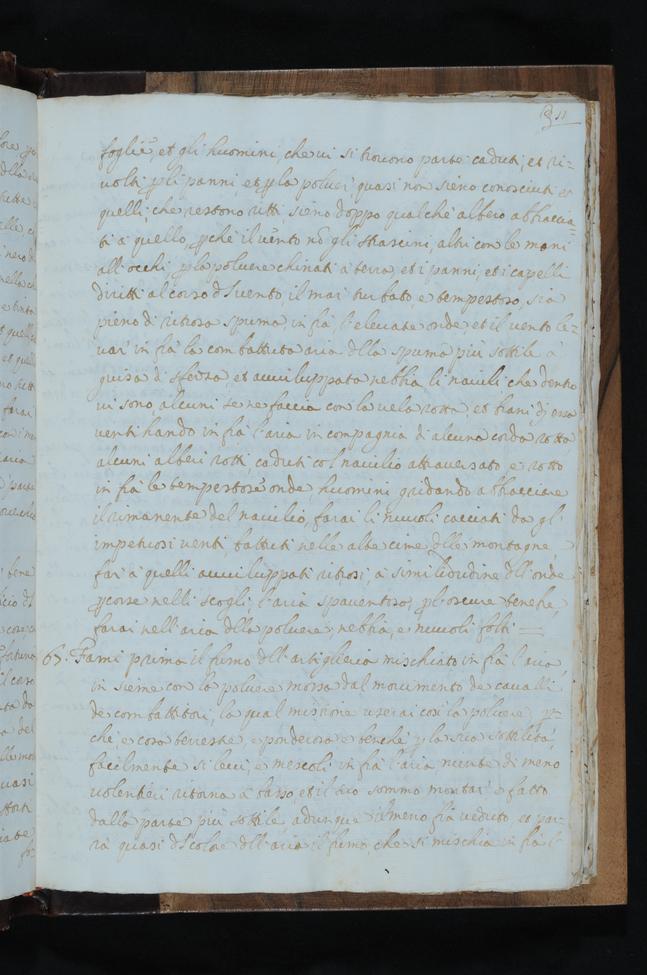 311
foglie, et gli huomini, che ui si trouono parte caduti, et ri-
uolti p li panni, et p la poluer quasi non sieno conosciuti et
quelli, che restono ritti, sieno doppo qualche albero abbraccia-
ti a quello, pche il uento nõ gli strascini, altri con le mani
all'occhi p la poluere chinati a terra, et i panni, et i capelli
diritti al corso dl uento il mar turbato, e tempestoso, sia
pieno di ritrosa spuma in frà l'eleuate onde et il uento le-
uar' in frà la combattuta aria dlla spuma più sottile a
guisa di sfersa, et auuiluppata nebbia li nauili che dentro
ui sono, alcuni se ne faccia con la uela rotta, et brani di essa
uentilando in frà l'aria in compagnia di alcuna corda rotta,
alcuni alberi rotti caduti col nauilio attrauersato, e rotto
in frà le tempestose onde, huomini gridando abbracciare
il rimanente del nauilio, farai li nuuoli cacciati da gl'
impetuosi uenti battuti nelle alte cime dlle montagne,
far' a quelli auuiluppati ritrosi, a similitudine dll'onde
pcosse nelli scogli, l'aria spauentosa, p l'oscure tenebre,
farai nell'aria dlla poluere, nebbia, e nuuoli folti
67. Farai prima il fumo dll'artiglieria mischiato in frà l'aria,
insieme con la poluere mossa dal mouimento de caualli
de combattitori, la qual mistione userai così la poluere, p-
che, e cosa terrestre, e ponderosa e benche p la sua sottilità,
facilmente si leui, e mescoli in frà l'aria niente di meno
uolentieri ritorna a basso et il suo sommo montar' e fatto
dalla parte più sottile, adunque il meno fia ueduto, et par-
rà quasi dl color dll'aria il fumo, che si mischia in frà l'